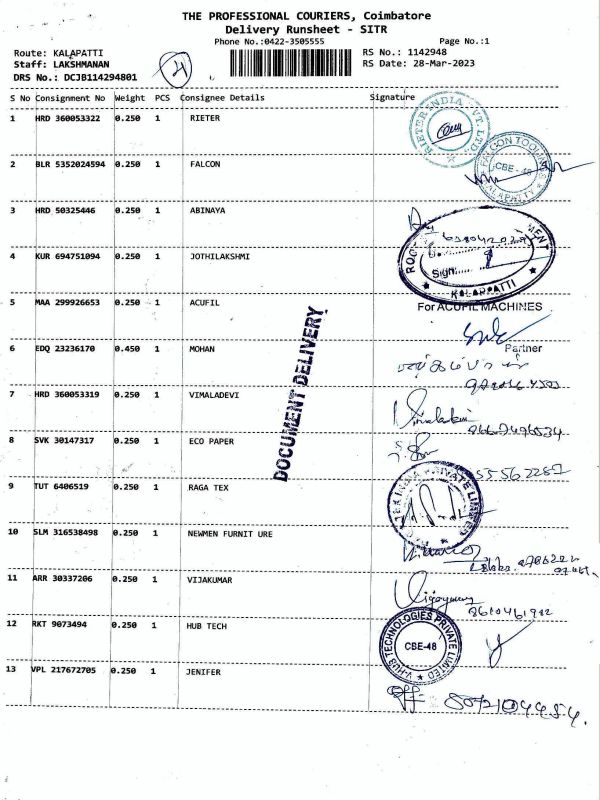 THE PROFESSIONAL COURIERS, Coimbatore
Delivery Runsheet - SITR
Phone No.:0422-3505555
Page No.:1
Route: KALAPATTI
RS No.: 1142948
Staff: LAKSHMANAN
RS Date: 28-Mar-2023
DRS No.: DCJB114294801
S No Consignment No Weight PCS Consignee Details Signature
1 HRD 360053322 0.250 1 RIETER
RIETER INDIA PVT. LTD.
2 BLR 5352024594 0.250 1 FALCON
CBE - 48
KALAPATTY
3 HRD 50325446 0.250 1 ABINAYA
4 KUR 694751094 0.250 1 JOTHILAKSHMI
Sign:
KALAPPATTI
5 MAA 299926653 0.250 1 ACUFIL
For ACUFIL MACHINES
Partner
6 EDQ 23236170 0.450 1 MOHAN
7 HRD 360053319 0.250 1 VIMALADEVI
8 SVK 30147317 0.250 1 ECO PAPER
DOCUMENT DELIVERY
9 TUT 6406519 0.250 1 RAGA TEX
INDIA PRIVATE LIMITED
10 SLM 316538498 0.250 1 NEWMEN FURNIT URE
11 ARR 30337206 0.250 1 VIJAKUMAR
12 RKT 9073494 0.250 1 HUB TECH
V-HUB TECHNOLOGIES PRIVATE LIMITED
CBE-48
13 VPL 217672705 0.250 1 JENIFER